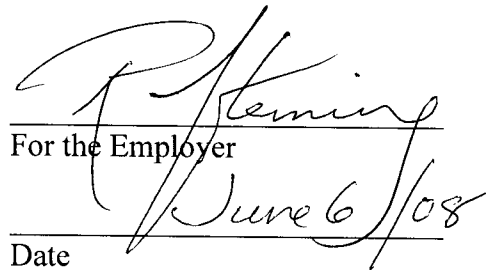 R Fleming
For the Employer
June 6/08
Date